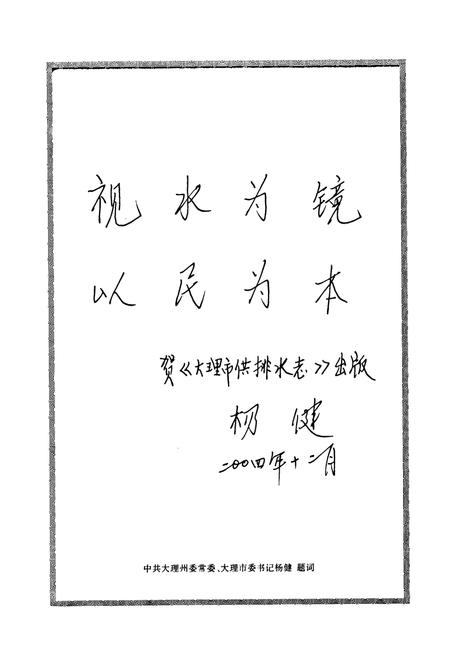 视水为镜
以民为本
贺《大理市供排水志》出版
杨健
二〇〇四年十二月
中共大理州委常委、大理市委书记杨健 题词